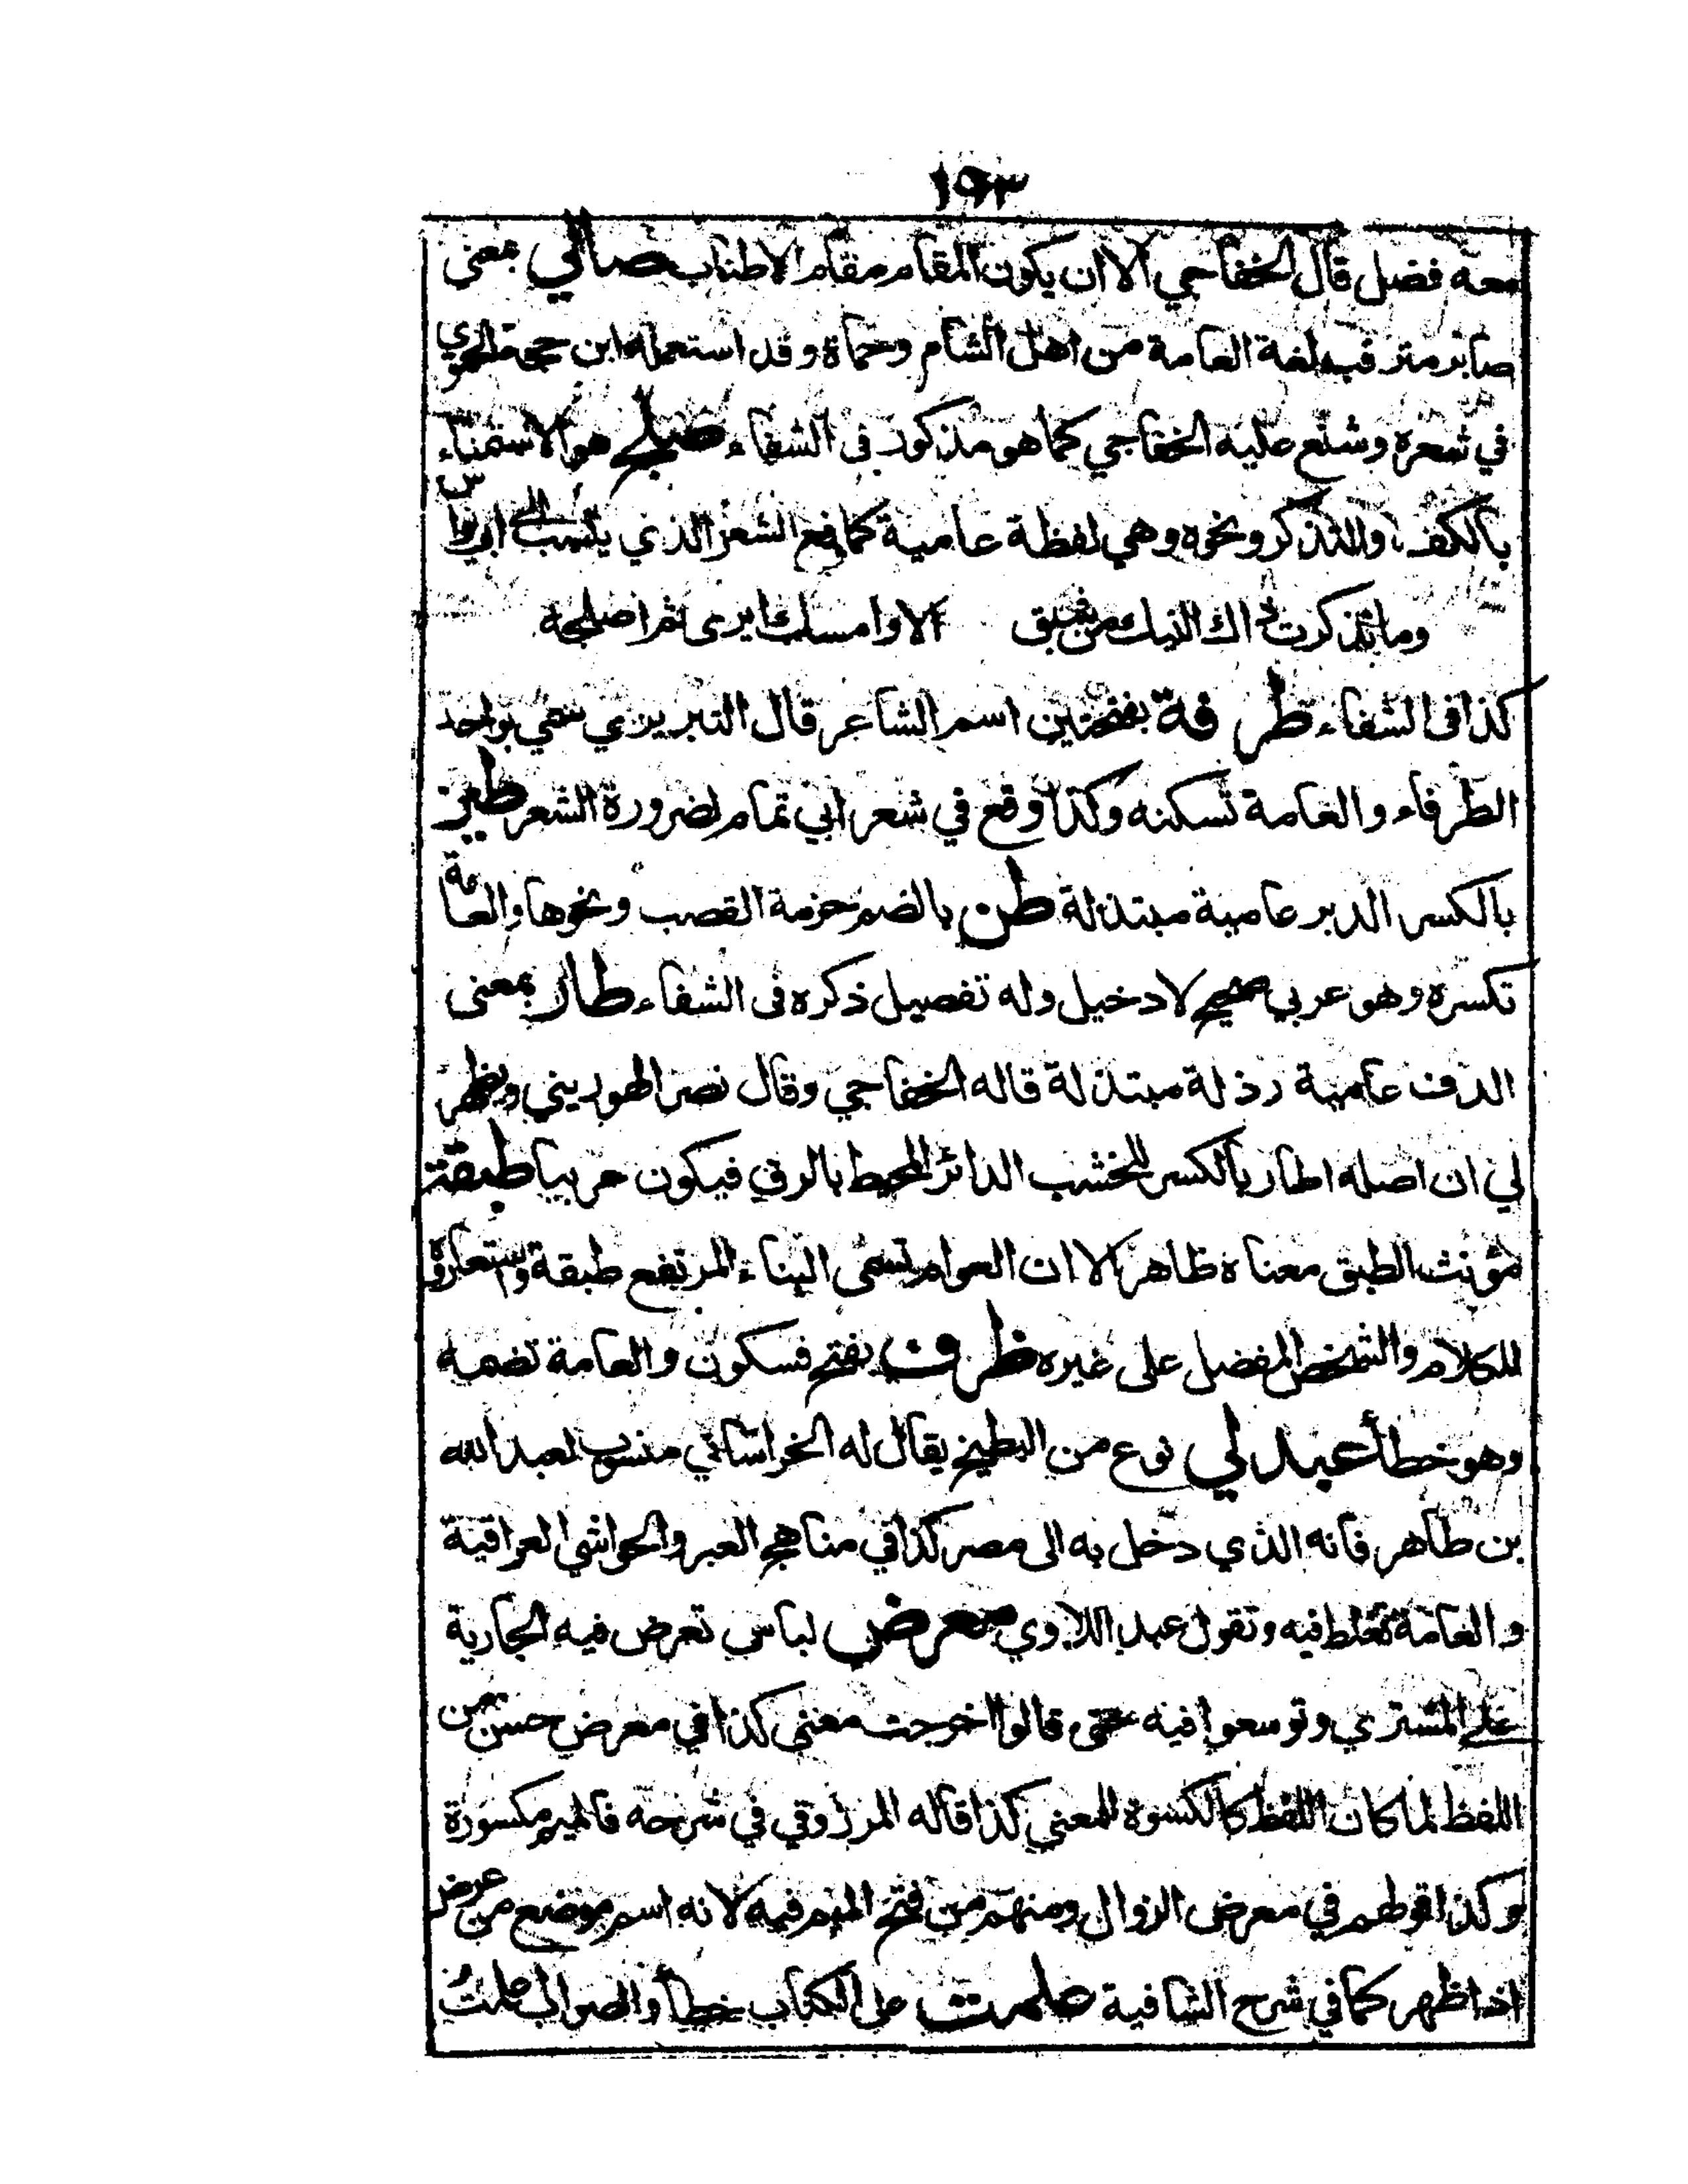 ١٩٣
معه فضل قال الخفاجي الا ان يكون المقام مقام الاطناب صالي بمعنى
صابر مترقب لغة العامة من اهل الشام وحماة وقد استعمله ابن حجة الحموي
في شعره وشنع عليه الخفاجي كما هو مذكور في الشفاء صلج هو الاستمناء
بالكف والتذكر ونحوه وهي لفظة عامية كما في الشعر الذي ينسب الى ابي نواس
وما تذكرت ذاك النيك من شبق الا وامسك ايرى ثم اصلجه
كذا في الشفاء طرفة بفتحتين اسم الشاعر قال التبريزي سمي بواحد
الطرفاء والعامة تسكنه وكذا وقع في شعر ابي تمام لضرورة الشعر طيز
بالكسر الدبر عامية مبتذلة طن بالضم حزمة القصب ونحوها والعامة
تكسره وهو عربي صحيح لا دخيل وله تفصيل ذكره في الشفاء طار بمعنى
الدف عامية رذلة مبتذلة قاله الخفاجي وقال نصر الهوريني ويظهر
لي ان اصله اطار بالكسر للخشب الدائر المحيط بالرق فيكون عربيا طبقة
مؤنث الطبق معناه ظاهر الا ان العوام تسمى البناء المرتفع طبقة واستعاروه
للكلام والشخص المفضل على غيره ظرف بفتح فسكون والعامة تضمه
وهو خطأ عبدلي نوع من البطيخ يقال له الخراساني منسوب لعبد الله
بن طاهر فانه الذي دخل به الى مصر كذا في مناهج العبر والحواشي العراقية
والعامة تغلط فيه وتقول عبد اللاوي معرض لباس تعرض فيه الجارية
على المشتري وتوسعوا فيه حتى قالوا اخرجت معنى كذا في معرض حسن من
اللفظ لما كان اللفظ كالكسوة للمعنى كذا قاله المرزوقي في شرحه فالميم مكسورة
وكذا قولهم في معرض الزوال ومنهم من فتح الميم فيه لانه اسم موضع من عرض
اذا ظهر كما في شرح الشافية علمت على الكتاب خطأ والصواب علمتُ